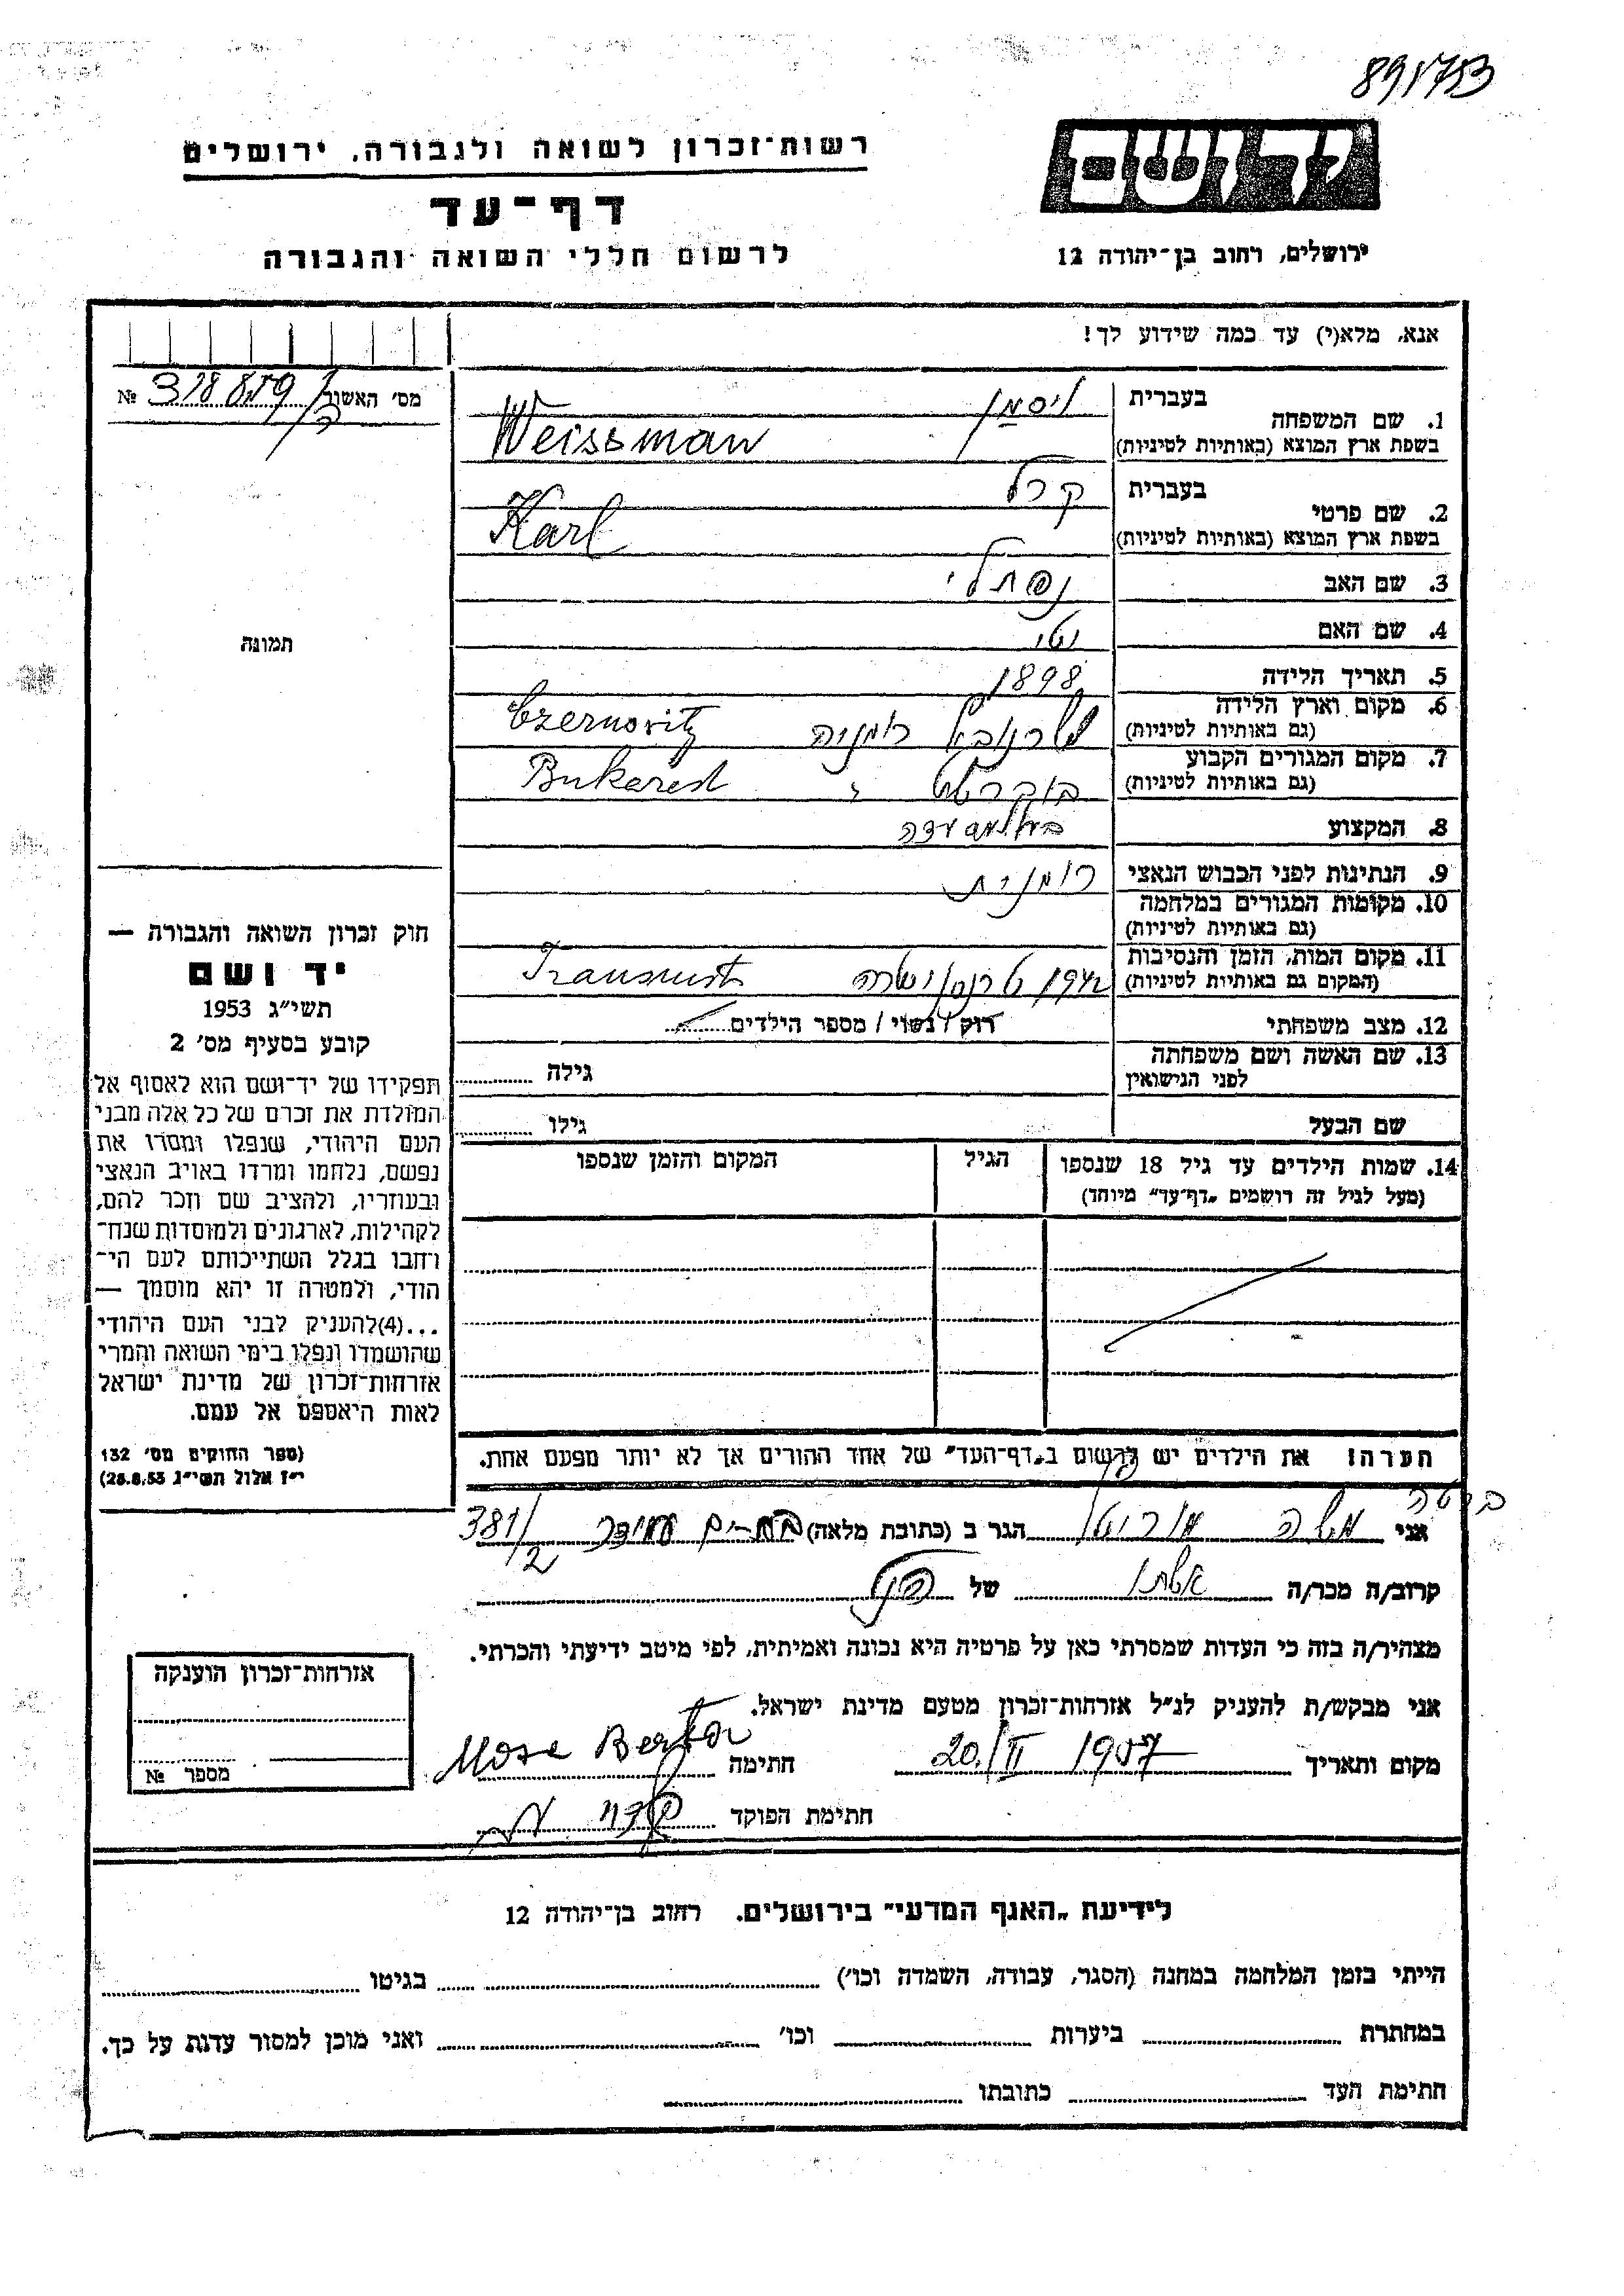 891753
רשות־זכרון לשואה ולגבורה, ירושלים
דף־עד
לרשום חללי השואה והגבורה
יד ושם
ירושלים, רחוב בן־יהודה 12
אנא, מלא(י) עד כמה שידוע לך!
מס' האשור № 318859
1. שם המשפחה בעברית ויסמן
בשפת ארץ המוצא (באותיות לטיניות) Weissman
2. שם פרטי בעברית קרל
בשפת ארץ המוצא (באותיות לטיניות) Karl
3. שם האב נפתלי
4. שם האם
5. תאריך הלידה 1898
6. מקום וארץ הלידה רומניה Czernovitz
(גם באותיות לטיניות)
7. מקום המגורים הקבוע בוקרשט Bukarest
(גם באותיות לטיניות)
8. המקצוע
9. הנתינות לפני הכבוש הנאצי רומנית
10. מקומות המגורים במלחמה
(גם באותיות לטיניות)
11. מקום המות, הזמן והנסיבות 1942 טרנסניסטריה
(המקום גם באותיות לטיניות)
12. מצב משפחתי רוק / נשוי / מספר הילדים
13. שם האשה ושם משפחתה גילה
לפני הנישואין
שם הבעל גילו
14. שמות הילדים עד גיל 18 שנספו הגיל המקום והזמן שנספו
(מעל לגיל זה רושמים „דף־עד" מיוחד)
הערה! את הילדים יש לרשום ב„דף־העד" של אחד ההורים אך לא יותר מפעם אחת.
תמונה
חוק זכרון השואה והגבורה —
יד ושם
תשי"ג 1953
קובע בסעיף מס' 2
תפקידו של יד־ושם הוא לאסוף אל
המולדת את זכרם של כל אלה מבני
העם היהודי, שנפלו ומסרו את
נפשם, נלחמו ומרדו באויב הנאצי
ובעוזריו, ולהציב שם וזכר להם,
לקהילות, לארגונים ולמוסדות שנח־
רבו בגלל השתייכותם לעם הי־
הודי, ולמטרה זו יהא מוסמך —
...(4)להעניק לבני העם היהודי
שהושמדו ונפלו בימי השואה והמרי
אזרחות־זכרון של מדינת ישראל
לאות היאספם אל עמם.
(ספר החוקים מס' 132
י"ז אלול תשי"ג 28.8.53)
ברטה
אני משה הגר ב (כתובת מלאה) 381/2
קרוב/ה מכר/ה של
מצהיר/ה בזה כי העדות שמסרתי כאן על פרטיה היא נכונה ואמיתית, לפי מיטב ידיעתי והכרתי.
אני מבקש/ת להעניק לנ"ל אזרחות־זכרון מטעם מדינת ישראל.
מקום ותאריך 20/II 1957 חתימה Mose Berta
חתימת הפוקד
אזרחות־זכרון הוענקה
מספר №
לידיעת „האגף המדעי" בירושלים, רחוב בן־יהודה 12
הייתי בזמן המלחמה במחנה (הסגר, עבודה, השמדה וכו') בגיטו
במחתרת ביערות וכו' ואני מוכן למסור עדות על כך.
חתימת העד כתובתו